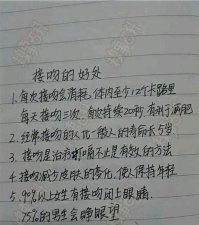 接吻的好处
1.每次接吻会消耗,体内至少12个卡路里
每天接吻三次,每次持续20秒,有利于减肥
2.经常接吻的人比一般人的寿命长5岁
3.接吻是治疗打嗝不止是有效的方法
4.接吻减少皮肤的老化,使人保持年轻
5.97%以上女生有接吻闭上眼睛
75%的男生会睁眼望